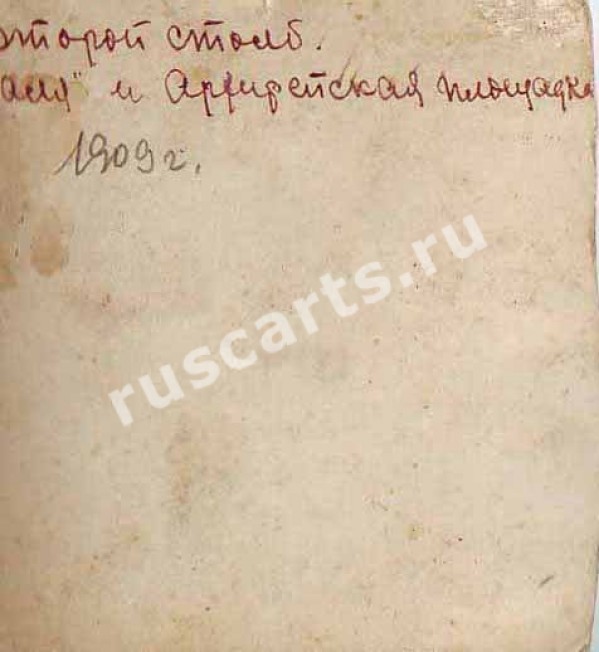 второй столб.
ая" и Архирейская площадка
1909 г.
ruscarts.ru